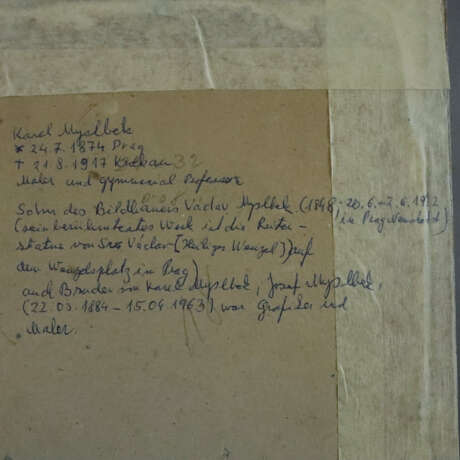 Karel Myslbek
* 24.7.1874 Prag
† 21.8.1917 Krakau 32
Maler und gymnasial Professor
Sohn des Bildhauers Václav Myslbek (1848 - 20.6. - 2.6.1922
(sein berühmtestes Werk ist die Reiter- in Prag
statue von Svo Václav (Heiliges Wenzel)) auf
dem Wenzelsplatz in Prag)
auch Bruder von Karel Myslbek, Josef Myslbek,
(22.03.1884 - 15.04.1963) war Grafiker und
Maler.